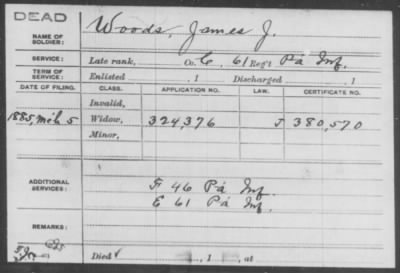 DEAD
NAME OF SOLDIER: Woods, James J.
SERVICE: Late rank, Co. C, 61 Reg't Pa Inf.
TERM OF SERVICE: Enlisted , 1 Discharged , 1
DATE OF FILING. CLASS. APPLICATION NO. LAW. CERTIFICATE NO.
Invalid,
1885, Mch 5 Widow, 324,376 J 380,570
Minor,
ADDITIONAL SERVICES: F 46 Pa Inf.
E 61 Pa Inf.
REMARKS:
Died , 1 , at